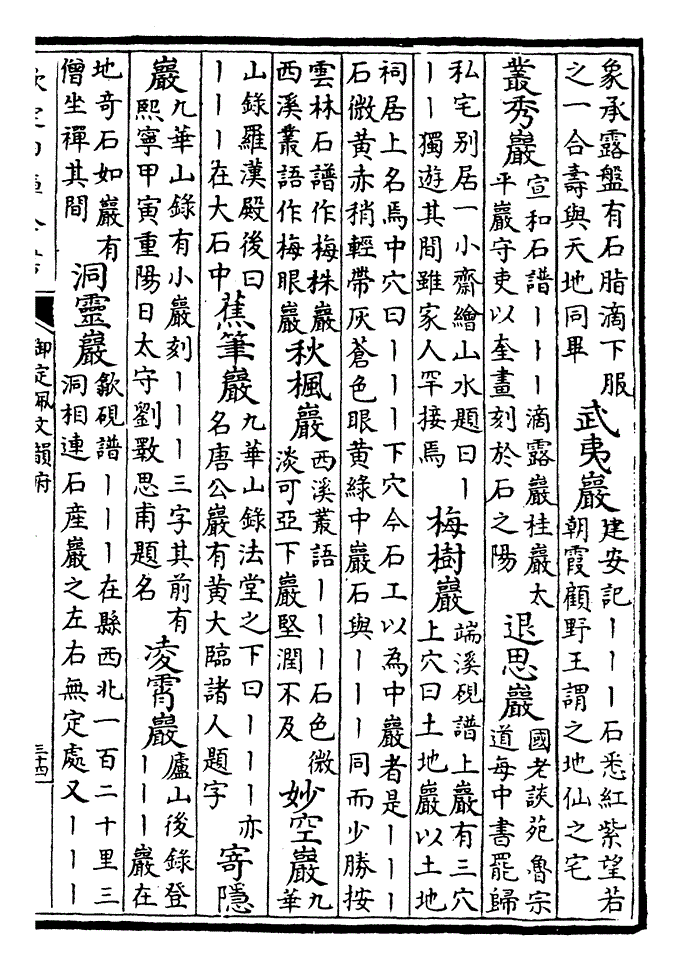 象承露盤有石脂滴下服
之一合壽與天地同畢
武夷巖
建安記丨丨丨石悉紅紫望若
朝霞顧野王謂之地仙之宅
叢秀巖
宣和石譜丨丨丨滴露巖桂巖太
平巖守吏以奎畫刻於石之陽
退思巖
國老談苑魯宗
道每中書罷歸
私宅别居一小齋繪山水題曰丨
丨丨獨遊其間雖家人罕接焉
梅樹巖
端溪硯譜上巖有三穴
上穴曰土地巖以土地
祠居上名焉中穴曰丨丨丨下穴今石工以為中巖者是丨丨丨
石微黄赤稍輕帶灰蒼色眼黄綠中巖石與丨丨丨同而少勝按
雲林石譜作梅株巖
西溪叢語作梅眼巖
秋楓巖
西溪叢語丨丨丨石色微
淡可亞下巖堅潤不及
妙空巖
九
華
山錄羅漢殿後曰
丨丨丨在大石中
蕉筆巖
九華山錄法堂之下曰丨丨丨亦
名唐公巖有黄大臨諸人題字
寄隱
巖
九華山錄有小巖刻丨丨丨三字其前有
熙寧甲寅重陽日太守劉斁思甫題名
凌霄巖
廬山後錄登
丨丨丨巖在
地奇石如巖有
僧坐禪其間
洞靈巖
歙硯譜丨丨丨在縣西北一百二十里三
洞相連石産巖之左右無定處又丨丨丨
欽定四庫全書
御定佩文韻府
三十四